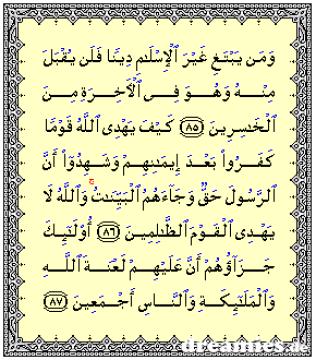 وَمَن يَبْتَغِ غَيْرَ ٱلْإِسْلَٰمِ دِينًا فَلَن يُقْبَلَ
مِنْهُ وَهُوَ فِى ٱلْأَخِرَةِ مِنَ
ٱلْخَٰسِرِينَ ٨٥ كَيْفَ يَهْدِى ٱللَّهُ قَوْمًا
كَفَرُوا۟ بَعْدَ إِيمَٰنِهِمْ وَشَهِدُوٓا۟ أَنَّ
ٱلرَّسُولَ حَقٌّ وَجَآءَهُمُ ٱلْبَيِّنَٰتُ ۚ وَٱللَّهُ لَا
يَهْدِى ٱلْقَوْمَ ٱلظَّٰلِمِينَ ٨٦ أُو۟لَٰٓئِكَ
جَزَآؤُهُمْ أَنَّ عَلَيْهِمْ لَعْنَةَ ٱللَّهِ
وَٱلْمَلَٰٓئِكَةِ وَٱلنَّاسِ أَجْمَعِينَ ٨٧
dreamies.de